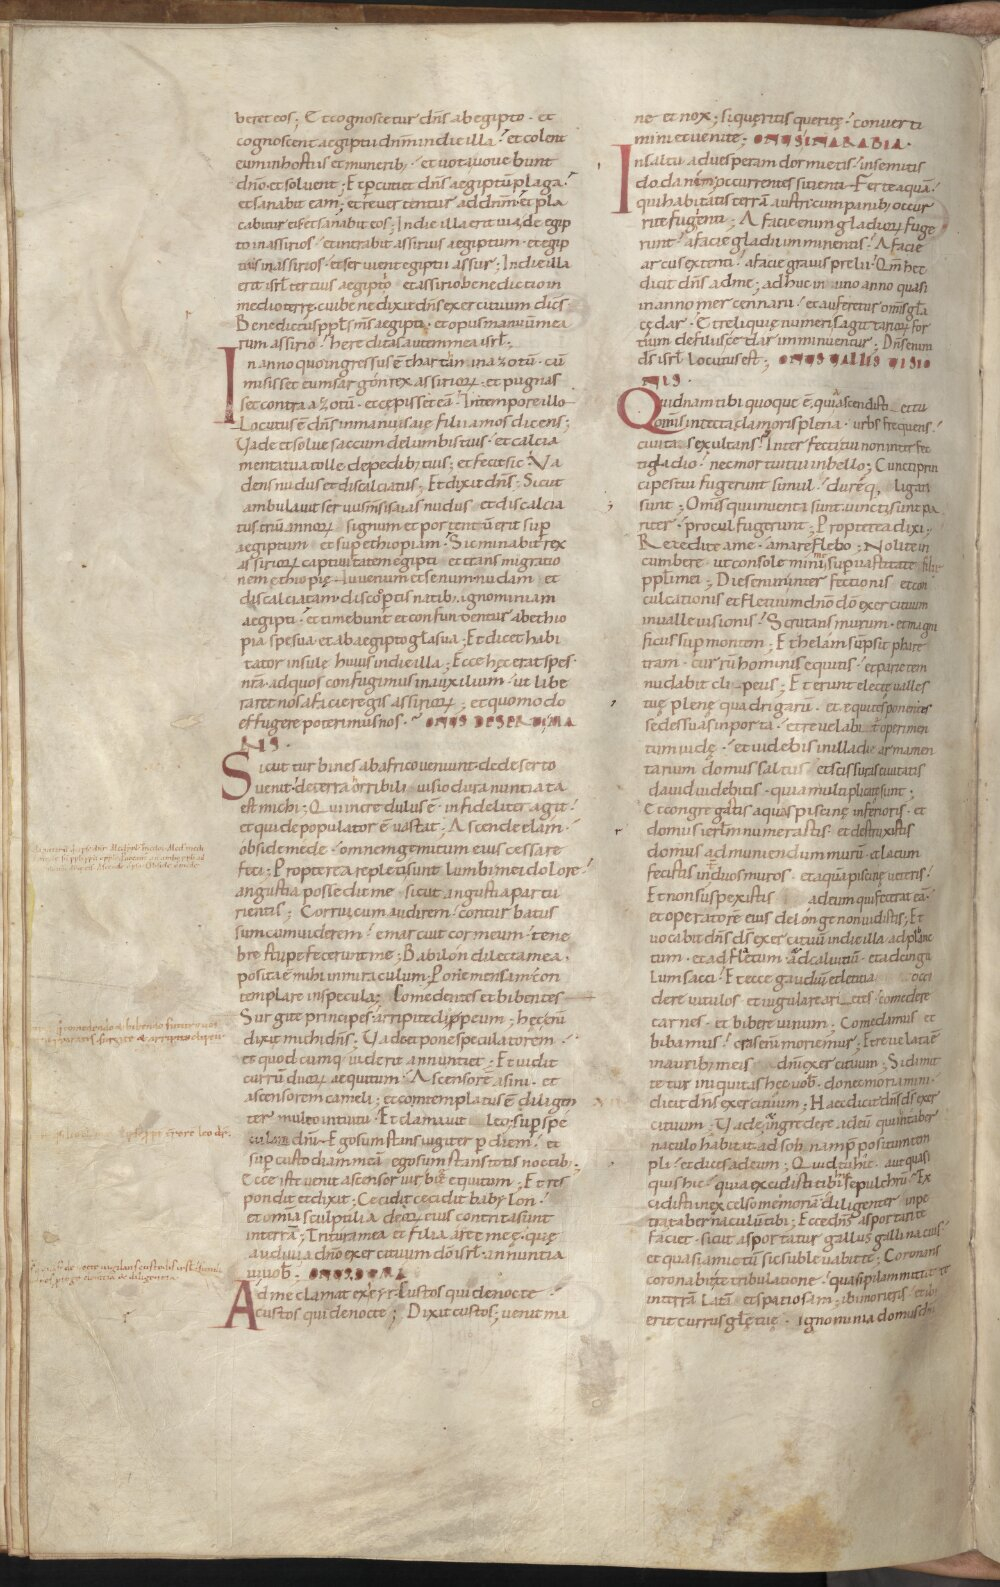 beret eos; Et cognoscetur dñs ab egipto · et
cognoscent aegiptii dñm in die illa · et colent
eum in hostiis et munerib; · et uota uouebunt
dño et soluent; Et pcutiet dñs aegiptũ plaga ·
et sanabit eam; et reuertentur ad dñm et pla
cabitur eis et sanabit eos; In die illa erit uia de egip
to in assirios · et intrabit assirius aegiptum · et egip
tius in assirios · et seruient egiptii assur; In die illa
erit isrł tercius aegipto et assirio benedictio in
medio terrę · cui benedixit dñs exercituum dicẽs
Benedictus ppłs m̃s aegipti · et opus manuũ mea
rum assirio · hereditas autem mea isrł;
In anno quo ingressus ẽ thartan in azotũ · cũ
misisset eum sargon rex assirioꝝ · et pugnas
set contra azotũ · et cępisset eã · In tempore illo
Locutus ẽ dñs in manu isaię filii amos dicens;
Vade et solue saccum de lumbis tuis · et calcia
menta tua tolle de pedib; tuis; et fecit sic · Va
dens nudus et discalciatus; Et dixit dñs; Sicut
ambulauit seruus ms̃ isaias nudus et discalcia
tus triũ annoꝝ signum et portentũ erit sup
aegiptum et sup ethiopiam · Sic minabit rex
assirioꝝ captiuitatem egipti et transmigratio
nem ethiopię · Iuuenum et senum nudam et
discalciatam · discooptis natib; ignominiam
aegipti · et timebunt et confundentur ab ethio
pia spe sua et ab aegipto gła sua; Et dicet habi
tator insulę huius in die illa; Ecce hęc erat spes ·
nr̃a · ad quos confugimus in auxilium · ut libe
rarent nos a facie regis assirioꝝ; et quomodo
effugere poterimus nos · ONUS DESERTI MA
RIS ·
Sicut turbines ab africo ueniunt · de deserto
uenit de terra orribili uisio dura nuntiata
est michi; Qui incredulus ẽ · infideliter agit ·
et qui depopulator ẽ uastat; Ascende elam ·
obside mede · omnem gemitum eius cessare
feci; Propterea repleti sunt lumbi mei dolore ·
angustia possedit me sicut angustia partu
rientis; Corrui cum audirem · conturbatus
sum cum uiderem · emarcuit cor meum · tene
bre stupefecerunt me; Babilon dilecta mea ·
posita ẽ mihi in miraculum · Pone mensam con
templare in specula; Comedentes et bibentes
Surgite principes · arripite clippeum; hęc enĩ
dixit michi dñs; Vade et pone speculatorem ·
et quodcumq; uiderit annuntiet; Et uidit
currũ duoꝝ aequitum · Ascensorẽ asini · et
ascensorem cameli; et contemplatus ẽ diligen
ter multo intuitu · Et clamauit leo · sup spe
culam dñi · Ego sum stans iugiter p diem · et
sup custodiam meã ego sum stans totis noctib;
Ecce iste uenit ascensor uir bige equitum; Et res
pondit et dixit; Cecidit cecidit babylon ·
et omĩa sculptilia deoꝝ eius contrita sunt
in terrã; Tritura mea et filia areę męę · quę
audiui a dño exercituum dõ isrł · annuntia
ui uob̃ · ONUS DUMA
Ad me clamat ex seyr · Custos quid e nocte ·
custos quid e nocte; Dixit custos; uenit ma
ne et nox; si queritis querite · conuerti
mini et uenite; ONUS IN ARABIA ·
In saltu ad uesperam dormietis · in semitis
dodanim · occurrentes sitienti · Ferte aquã ·
qui habitatis terrã austri · cum panib; occur
rite fugienti; A facie enim gladioꝝ fuge
runt · a facie gladii imminentis · A facie
arcus extenti · a facie grauis prelii · Qm̃ hec
dicit dñs ad me; adhuc in uno anno quasi
in anno mercennarii · et auferetur omĩs gła
cedar · Et reliquię numeri sagittarioꝝ for
tium de filiis cedar imminuentur; Dñs enim
ds̃ isrł locutus est; ONUS VALLIS VISIO
NIS ·
Quidnam tibi quoque ẽ, quia ascendisti et tu
omĩs in tecta clamoris plena · urbs frequens ·
ciuitas exultans · Interfecti tui non interfec
ti gladio · nec mortui tui in bello; Cuncti prin
cipes tui fugerunt simul · dureq, ligati
sunt; Omĩs qui inuenti sunt uincti sunt pa
riter · procul fugerunt; Propterea dixi ·
Recedite a me · amare flebo; Nolite in
cumbere · ut consolemini me sup uastitate filię
ppli mei; Dies enim interfectionis et con
culcationis et fletuum dño dõ exercituum
in ualle uisionis · Scrutans murum · et magni
ficus sup montem; Et helam sũpsit phare
tram · currũ hominis equitis · et parietem
nudabit clipeus; Et erunt electę ualles
tuę plenę quadrigarũ · et equites ponent
sedes suas in porta · et reuelabit operimen
tum iudę · et uidebis in illa die armamen
tarium domus saltus et scissuras ciuitatis
dauid uidebitis · quia multiplicatę sunt;
Et congregastis aquas piscinę inferioris · et
domus ierłm numerastis · et destruxistis
domus ad muniendum murũ · et lacum
fecistis int̃ duos muros · et aqua piscinę ueteris ·
Et non suspexistis ad eum qui fecerat eã ·
et operatorẽ eius de longe non uidistis; Et
uocabit dñs ds̃ exercituũ in die illa · ad planc
tum · et ad fletum · ad caluitiũ · et ad cingu
lum sacci · Et ecce gaudiũ et letitia occi
dere uitulos · et iugulare arietes · comedere
carnes · et bibere uinum; Comedamus et
bibamus · cras enĩ moriemur; Et reuelata ẽ
in aurib; meis dñi exercituum; Si dimit
tetur iniquitas hec uob̃ · donec moriamini ·
dicit dñs exercituum; Haec dicit dñs ds̃ exer
cituum; Vade ingredere ad eũ qui habitat
in tabernaculo
pli · et dices ad eum; Quid tu hic · aut quasi
quis hic · quia excidisti tibi hic sepulchrũ · Ex
cidisti in excelso memoriã diligenter in pe
tra tabernaculũ tibi; Ecce dñs asportari te
faciet · sicut asportatur gallus gallinacius ·
et quasi amictũ sic subleuabit te; Coronans
coronabit te tribulatione · quasi pilam mittit te
in terrã latã et spatiosam · ibi morieris · et ibi
erit currus głę tuę · ignominia domus dñi